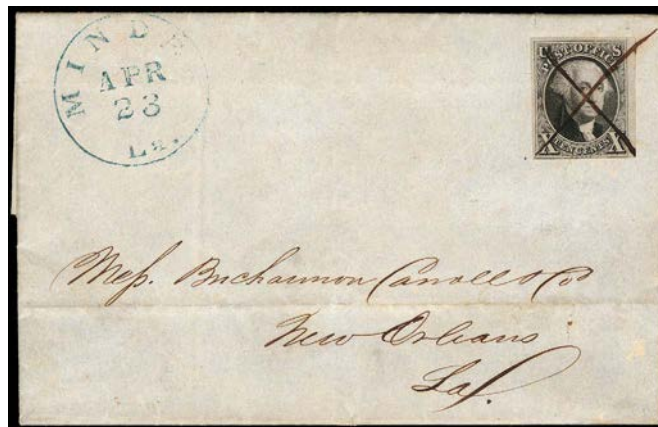 MINDE
APR
23
La.
U S
POST OFFICE
X TEN CENTS X
Mess. Buchannon Carroll & Co
New Orleans
La.